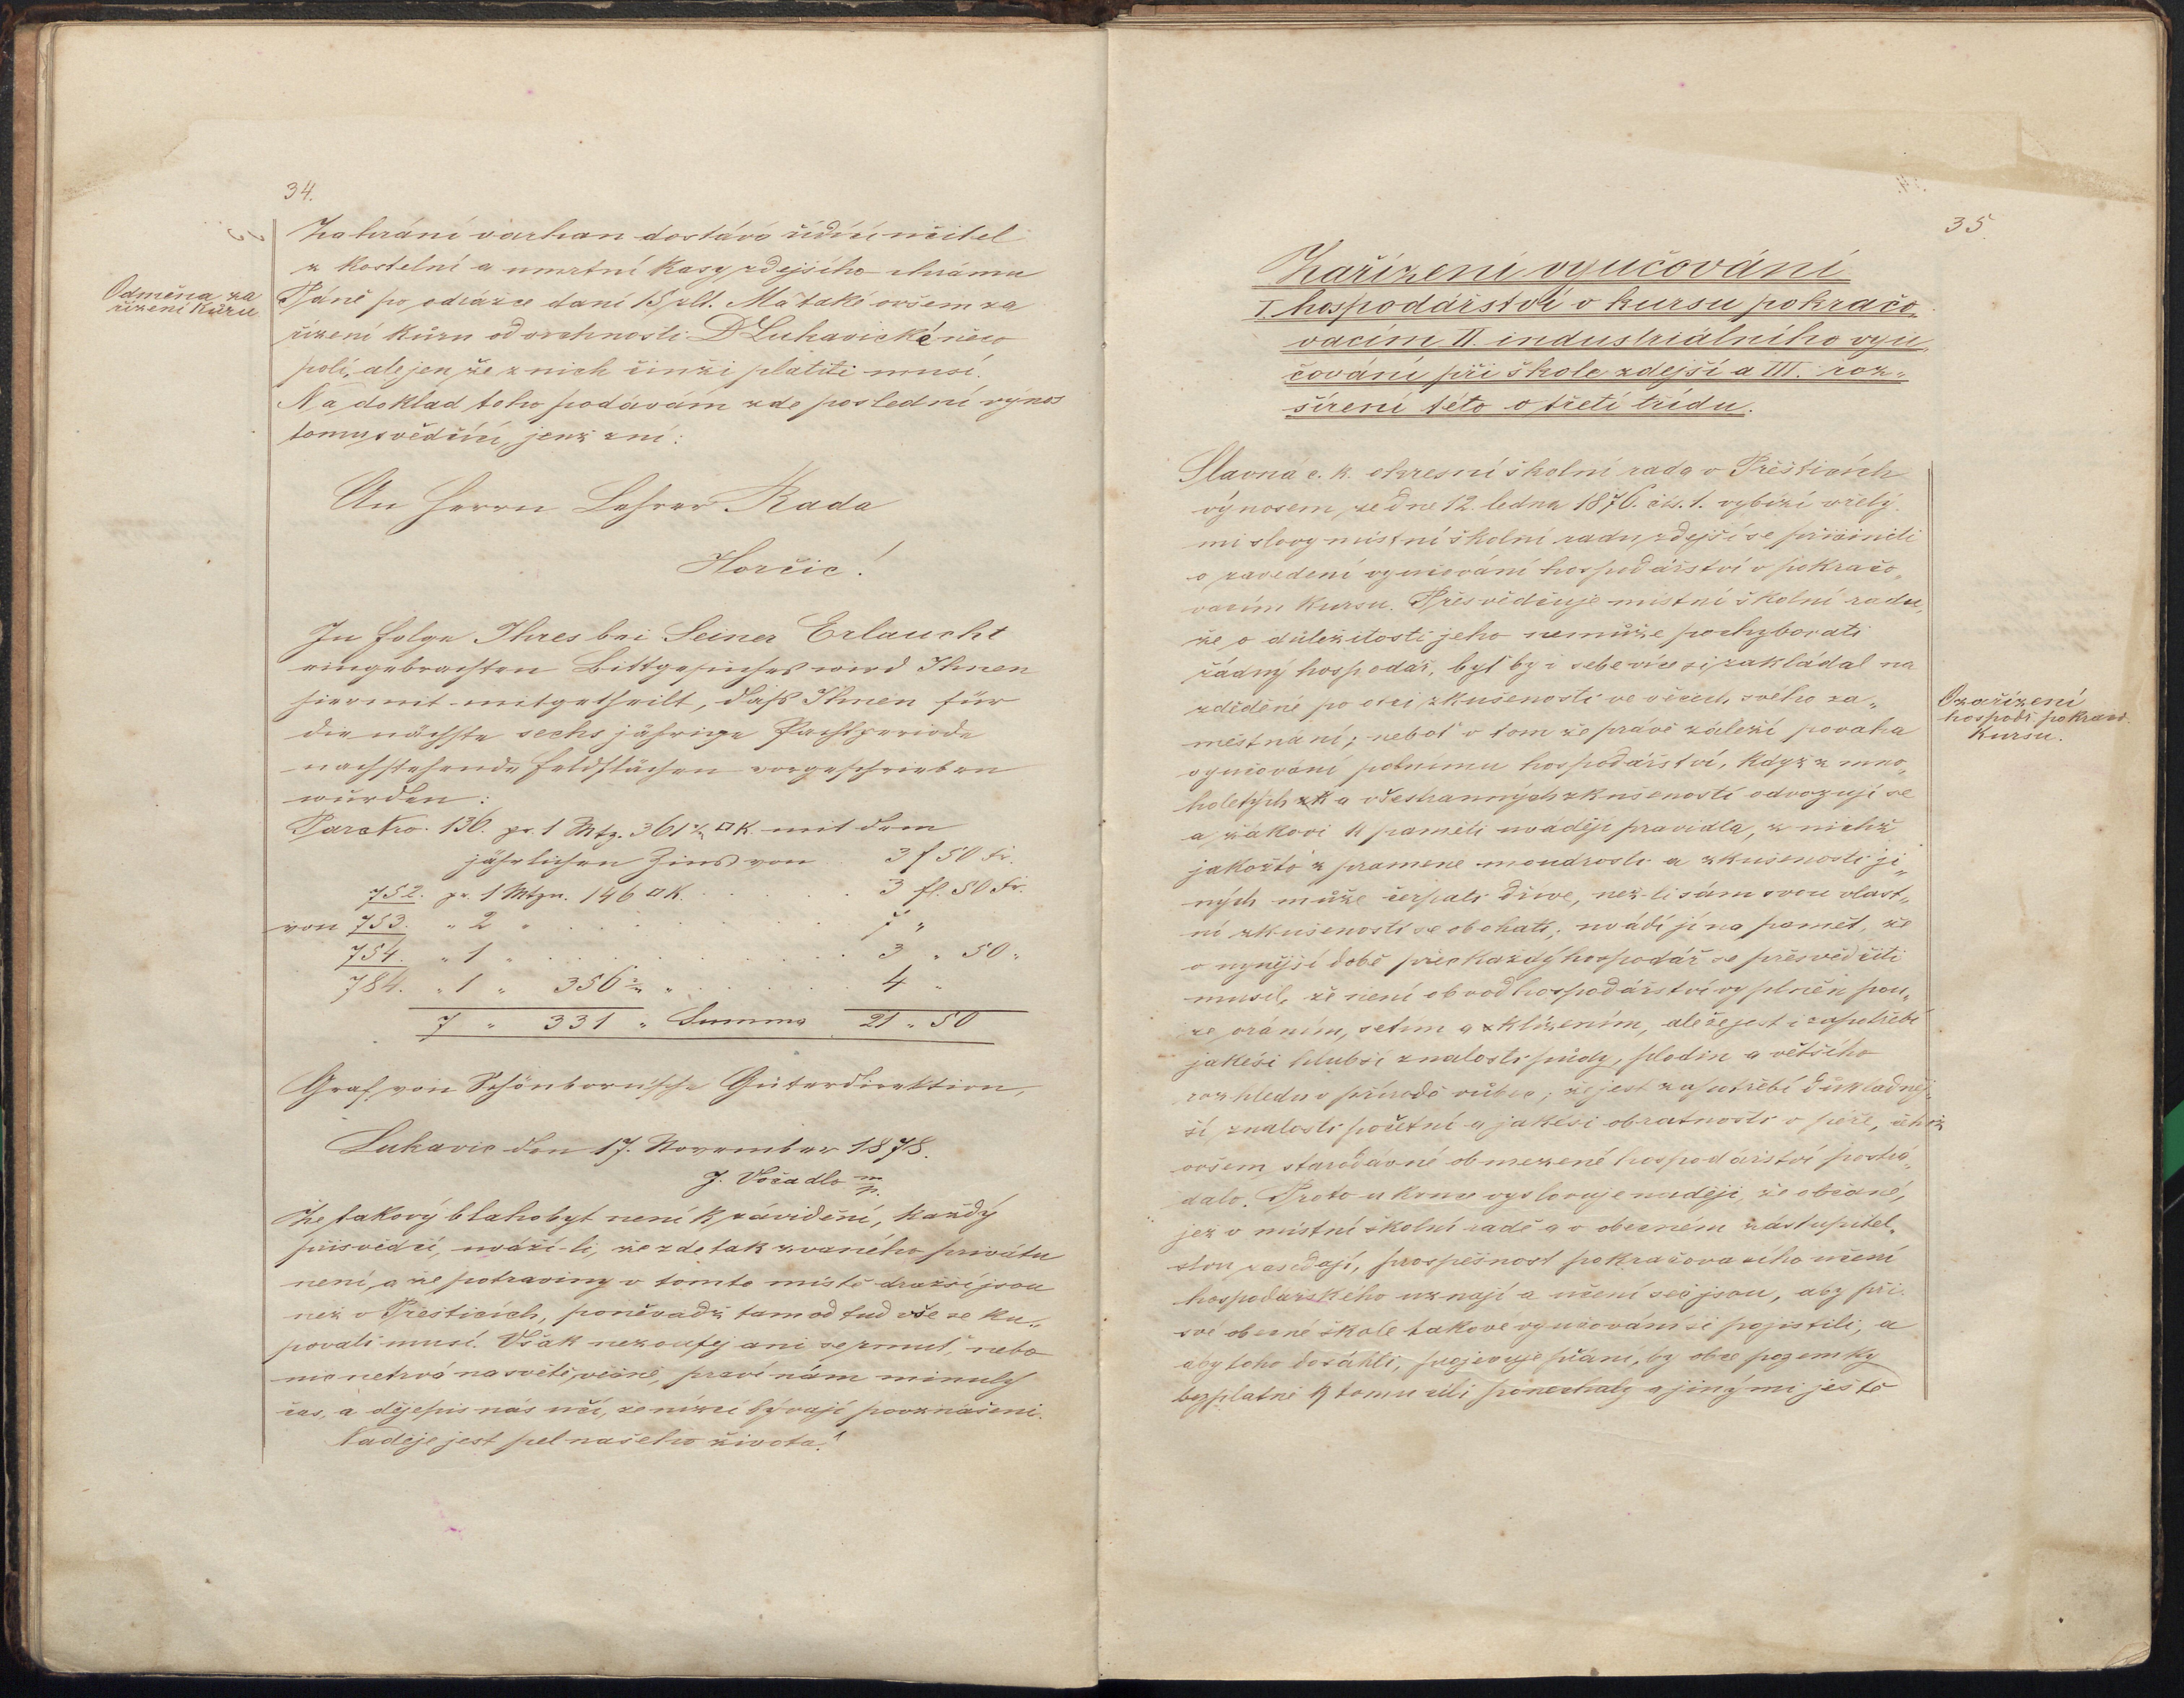 34.
Za hraní varhan dostává řídící učitel
z kostelní a umrtní kasy zdejšího chrámu
Odměna za
řízení kůru
Páně po odrážce daní 15 zlt. Má také ovšem za
řízení kůru od vrchnosti D Lukavické něco
polí, ale jen že z nich činži platiti musí.
Na doklad toho podávám zde poslední výnos
tomu svědčící, jenž zní:
An Herrn Lehrer Rada
Horčic!
In Folge Ihres bei Seiner Erlaucht
eingebrachten Bittgesuches wird Ihnen
hiermit mitgetheilt, daß Ihnen für
die nächste sechs jährige Pachtperiode
nachstehende Feldflächen vorgeschrieben
wurden:
Parc Nro. 136. pr. 1 Mtz. 361 □K. mit dem
jährlichen Zins von . . 3 f 50 kr.
752. pr. 1 Mtzn. 146 □K. . . . . 3 fl. 50 kr.
von 753. „ 2 „ . . . . . . . 7 „
754. „ 1 „ . . . . . . . . 3 „ 50 „
784. „ 1 „ 356 „ . . . . . 4 „
7 „ 331 „ Summa 21 „ 50
Graf von Schönborn'sche Güterdirektion,
Lukavic den 17. November 1878.
J. Vočadlo m/p.
Že takový blahobyt není k závidění, každý
přisvědčí, uváží-li, že zde tak zvaného privátu
není, a že potraviny v tomto místě dražší jsou
než v Přešticích, poněvadž tam od tud vše se ku„
povati musí. Však nezoufej ani se rmuť, nebo
nic netrvá na světě věčně, praví nám minulý
čas, a dějepis nás učí, že nízcí bývají povznášeni.
Naděje jest pel našeho života!
35
Zařízení vyučování
I. hospodářství v kursu pokračo„
vacím II. industriálního vyu„
čování při škole zdejší a III. roz„
šíření této o třetí třídu.
Slavná c. k. okresní školní rada v Přešticích
výnosem ze dne 12. ledna 1876. čís. 1. vybízí vřelý„
mi slovy místní školní radu zdejší se přičiniti
o zavedení vyučování hospodářství v pokračo„
vacím kursu. Přesvědčuje místní školní radu,
že o důležitosti jeho nemůže pochybovati
žádný hospodář, byť by i sebe více si zakládal na
zděděné po otci zkušenosti ve věcech svého za„
O zařízení
hospodř. pokrač.
kursu.
městnání; neboť v tom že právě záleží povaha
vyučování polnímu hospodářství, když z mno„
holetých zk a všestranných zkušeností odvozují se
a žákovi k paměti uvádějí pravidla, z nichž
jakožto z pramene moudrosti a zkušenosti ji„
ných může čerpati dříve, než-li sám svou vlast„
ní zkušeností se obohatí; uvádí jí na paměť, že
v nynější době přec každý hospodář se přesvědčiti
musil, že není obvod hospodářství vyplněn pou„
ze oráním, setím a sklízením, ale že jest i zapotřebí
jakési hlubší znalosti půdy, plodin a většího
rozhledu v přírodě vůbec; že jest zapotřebí důkladněj„
ší znalosti početní a jakési obratnosti v péře, čehož
ovšem starodávné obmezené hospodářství postrá„
dalo. Proto u konce vyslovuje naději, že občané,
jež v místní školní radě a v obecném zástupitel„
stvu zasedají, prospěšnost pokračovacího učení
hospodářského uznají a učení seč jsou, aby při
své obecné škole takové vyučování si pojistili, a
aby toho dosáhli, projevuje přání, by obce pozemky
bezplatně k tomu cíli ponechaly a jinými ještě